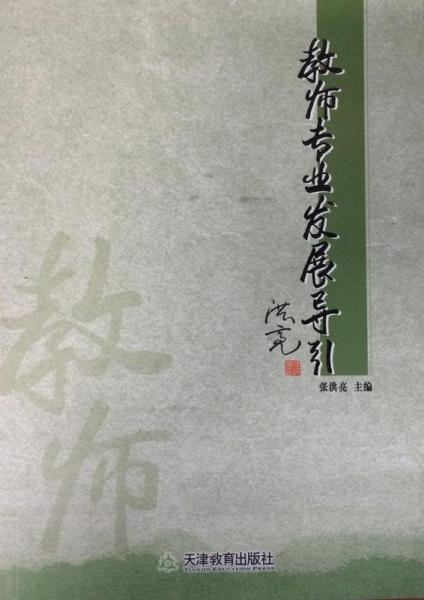 教师专业发展导引
洪亮
张洪亮 主编
教师
天津教育出版社
TIANJIN EDUCATION PRESS